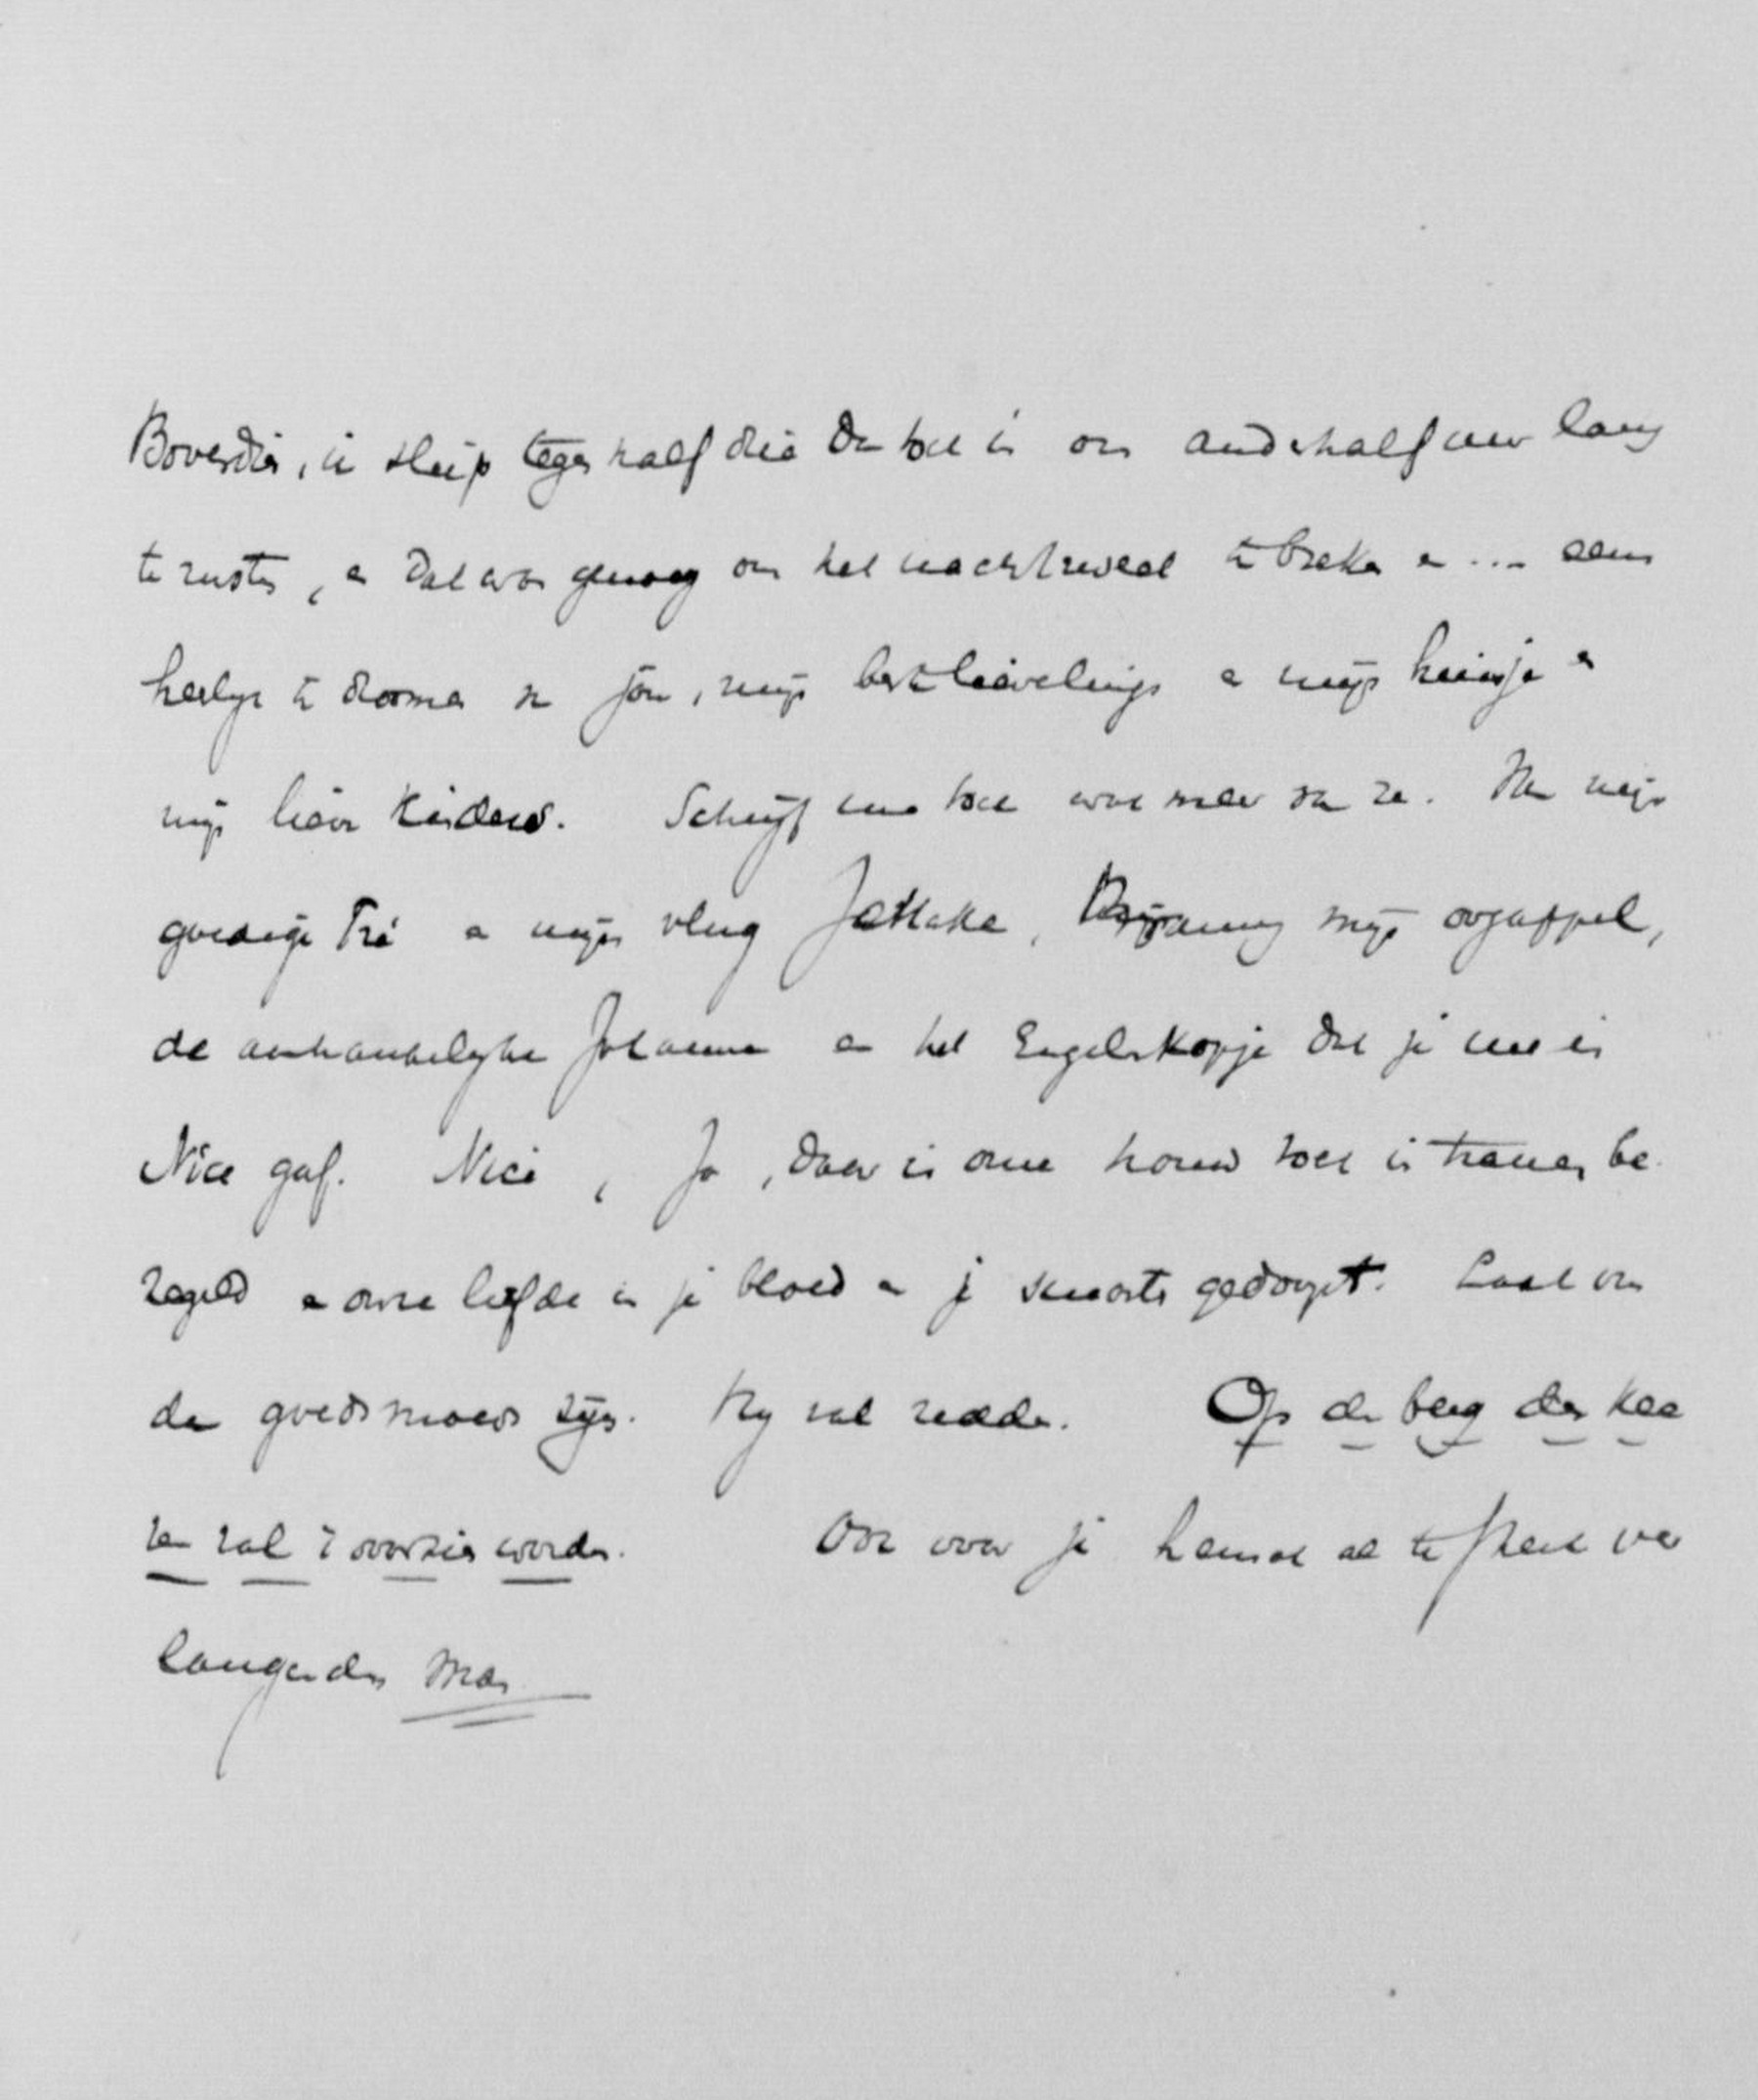 Bovendien, ik sliep tegen half drie dan toch in om anderhalf uur lang
te rusten, en dat was genoeg om het nachtkwaad te breken en ... eens
heerlijk te droomen van jou, mijn beste lieveling en mijn huisje en
mijn lieve kinders. Schrijf me toch wat meer van ze. Van mijn
goedige Tré en mijn vlug Jetteke, mijn oogappel,
de aanhankelijke Johanna en het Engelskopje dat je me in
Nice gaf. Nice, Ja, daar is onze trouw toch in tranen be
zegeld en onze liefde in je bloed en je smarte gedoopt. Laat ons
dan goedsmoeds zijn. Hij zal redden. Op den berg des Hee
ren zal 't voorzien worden. naar je te sterk ver
langenden Man